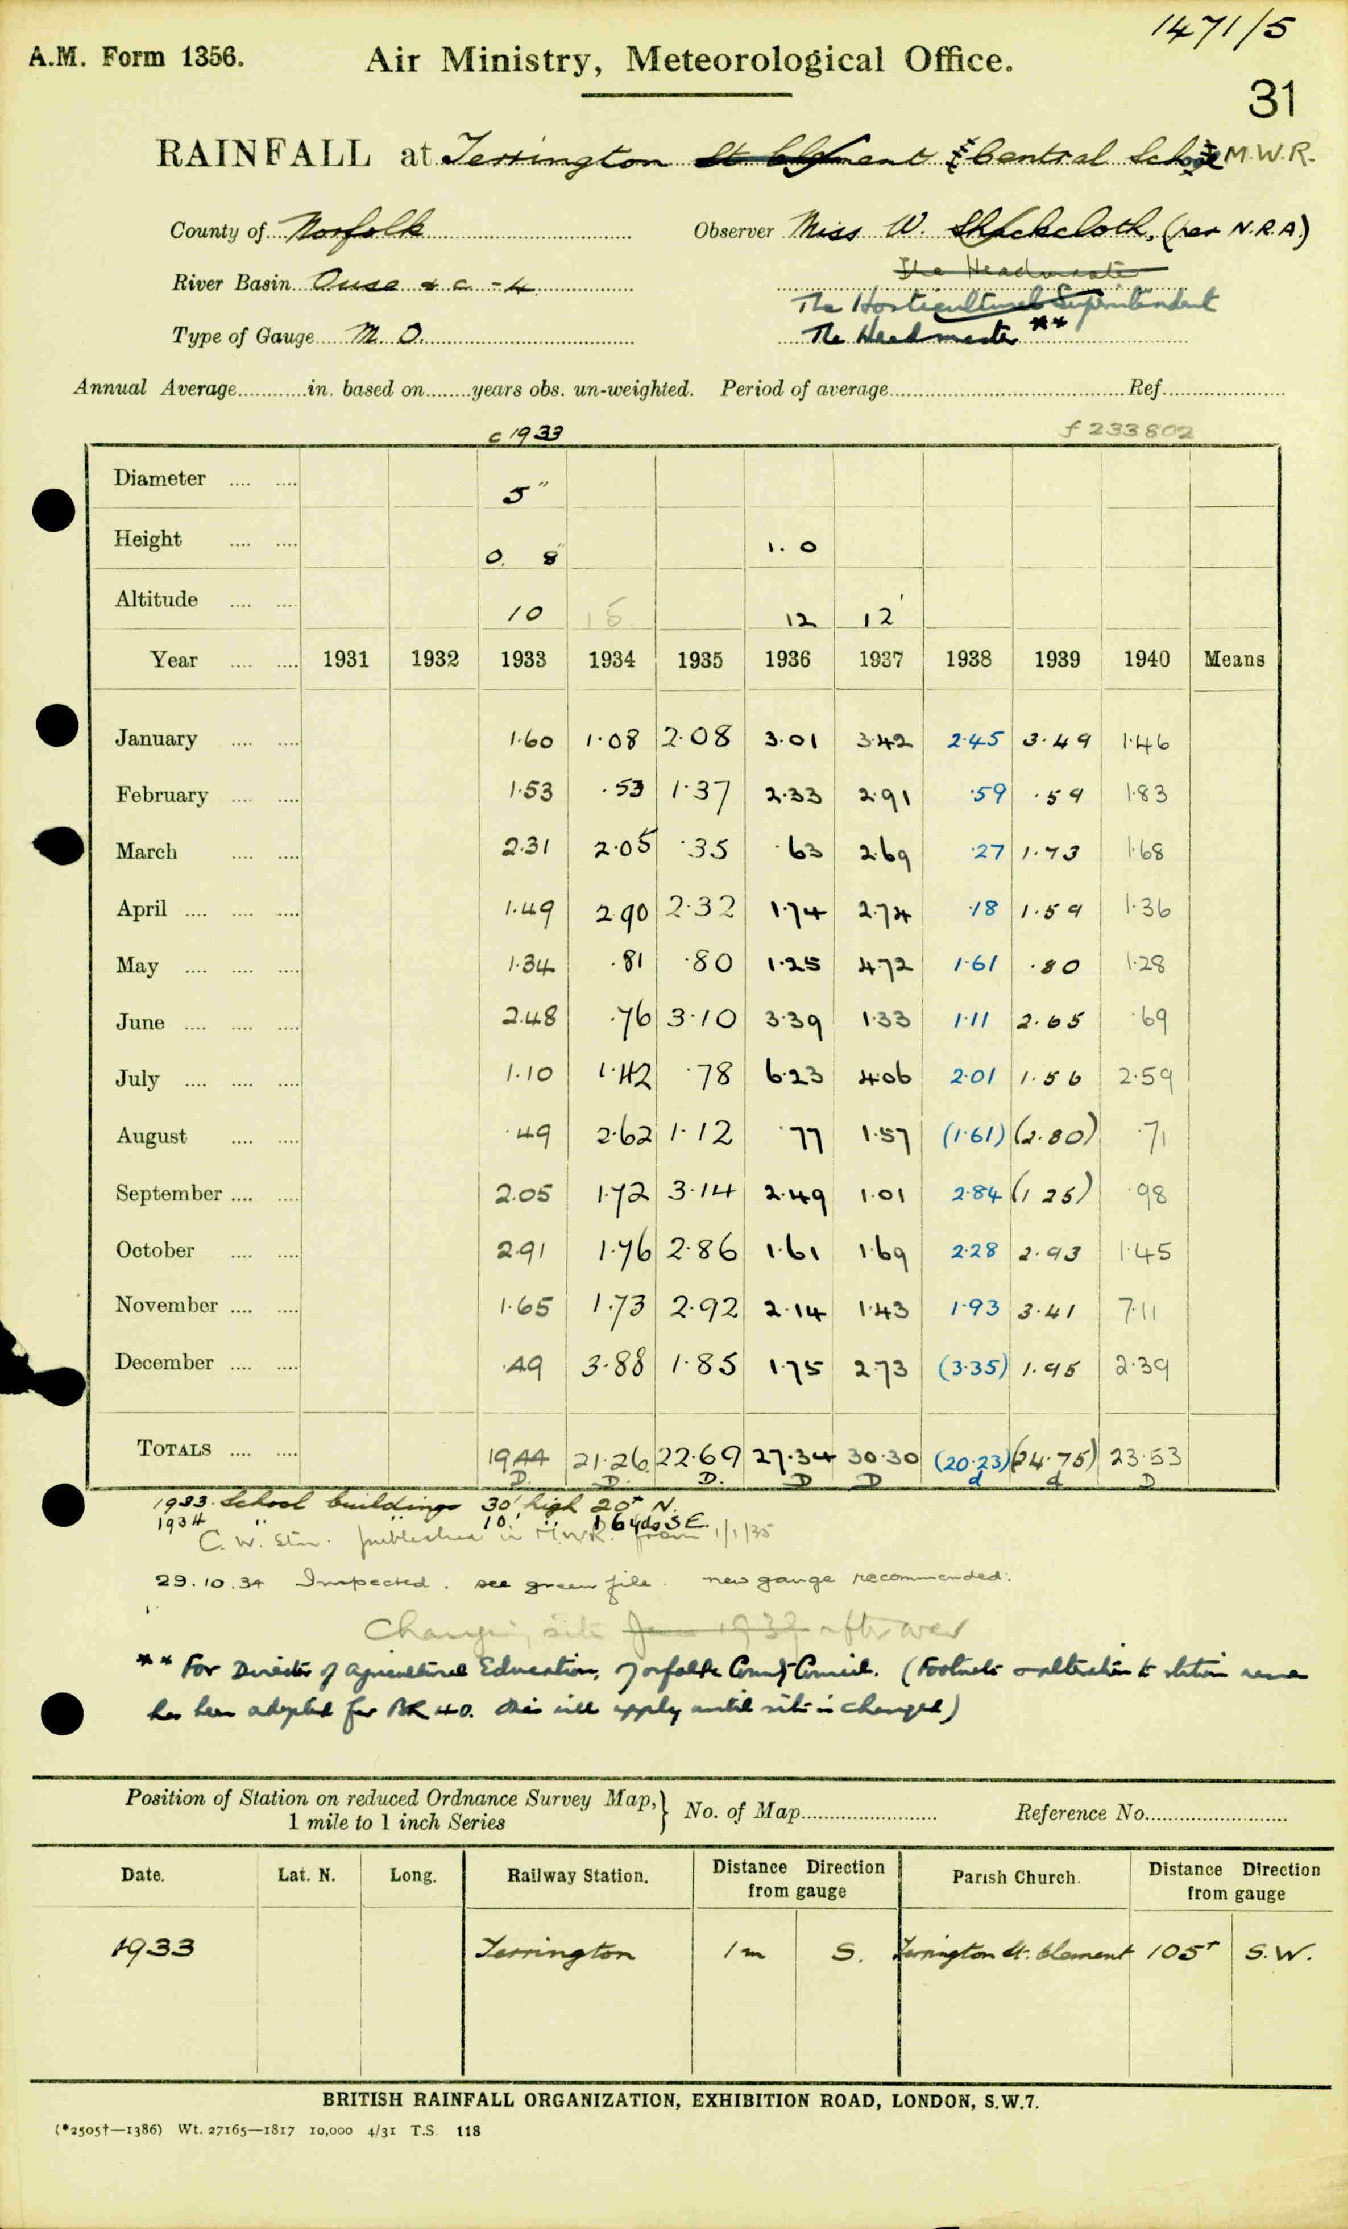 1471/5
A.M. Form 1356. Air Ministry, Meteorological Office.
31
RAINFALL at Terrington St. Clement Central School M.W.R.
County of Norfolk Observer Miss W. Shackcloth, (per N.R.A.)
The Headmaster
River Basin Ouse & c - 4
The Horticultural Superintendent
Type of Gauge M.O. The Headmaster **
Annual Average in. based on years obs. un-weighted. Period of average Ref.
c 1933 f 233802
Diameter .... .... 5"
Height .... .... 0. 8" 1. 0
Altitude .... .... 10 15 12 12'
Year .... .... 1931 1932 1933 1934 1935 1936 1937 1938 1939 1940 Means
January .... .... 1.60 1.08 2.08 3.01 3.42 2.45 3.49 1.46
February .... .... 1.53 .53 1.37 2.33 2.91 .59 .59 1.83
March .... .... 2.31 2.05 .35 .63 2.69 .27 1.73 1.68
April .... .... .... 1.49 2.90 2.32 1.74 2.74 .18 1.59 1.36
May .... .... .... 1.34 .81 .80 1.25 4.72 1.61 .80 1.28
June .... .... .... 2.48 .76 3.10 3.39 1.33 1.11 2.65 .69
July .... .... .... 1.10 1.42 .78 6.23 4.06 2.01 1.56 2.59
August .... .... .49 2.62 1.12 .77 1.57 (1.61) (2.80) .71
September .... .... 2.05 1.72 3.14 2.49 1.01 2.84 (1.25) .98
October .... .... 2.91 1.76 2.86 1.61 1.69 2.28 2.93 1.45
November .... .... 1.65 1.73 2.92 2.14 1.43 1.93 3.41 7.11
December .... .... .49 3.88 1.85 1.75 2.73 (3.35) 1.95 2.39
TOTALS .... .... 19.44 21.26 22.69 27.34 30.30 (20.23) (24.75) 23.53
D. D. D. D D d d D
1933. School buildings 30' high 20ˣ N.
1934 " " 10' " 16yds S E.
C. W. Stn. published in M.W.R. from 1/1/35
29.10.34 Inspected. see green file. new gauge recommended.
Changing site June 1939 after war
** For Director of Agricultural Education, Norfolk County Council. (Footnote & alteration to station name
has been adopted for BR 40. This will apply until site is changed)
Position of Station on reduced Ordnance Survey Map,} No. of Map Reference No.
1 mile to 1 inch Series
Date. Lat. N. Long. Railway Station. Distance Direction from gauge Parish Church. Distance Direction from gauge
1933 Terrington 1m S. Terrington St. Clement 105ˣ S.W.
BRITISH RAINFALL ORGANIZATION, EXHIBITION ROAD, LONDON, S.W.7.
(*2505†—1386) Wt. 27165—1817 10,000 4/31 T.S. 118